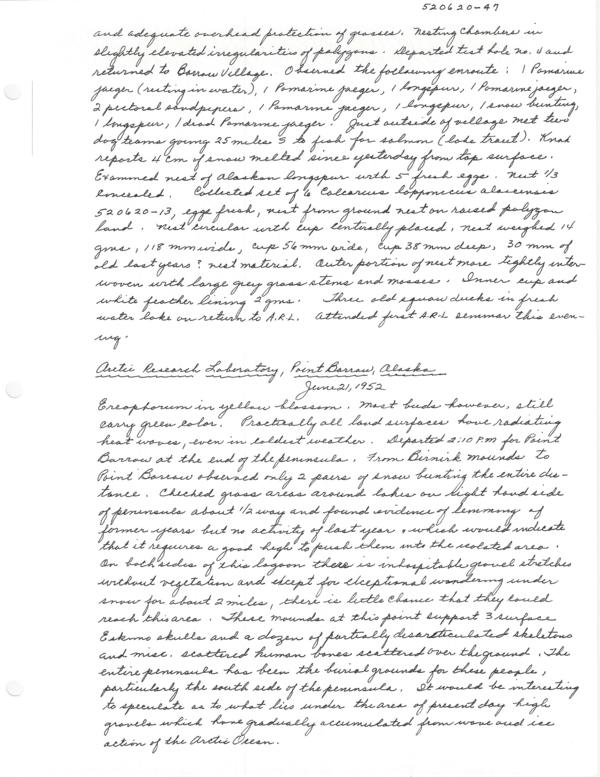 520620-47
and adequate overhead protection of grasses. Nesting Chambers in
slightly elevated irregularities of polygons. Departed test hole no. 4 and
returned to Barrow Village. Observed the following enroute: 1 Pomarine
jaeger (resting in water), 1 Pomarine jaeger, 1 longspur, 1 Pomarine jaeger,
2 pectoral sandpipers, 1 Pomarine jaeger, 1 longspur, 1 snow bunting,
1 longspur, 1 dead Pomarine jaeger. Just outside of village met two
dog teams going 25 miles S to fish for salmon (lake trout). Knak
reports 4 cm of snow melted since yesterday from top surface.
Examined nest of Alaskan longspur with 5 fresh eggs. Nest 1/3
concealed. Collected set of 6 Calcarius lapponicus alascensis
520620-13, eggs fresh, nest from ground nest on raised polygon
land. Nest circular with cup centrally placed, nest weighed 14
gms, 118 mm wide, cup 56 mm wide, cup 38 mm deep, 30 mm of
old last years? nest material. Outer portion of nest more tightly inter-
woven with large grey grass stems and mosses. Inner cup and
white feather lining 2 gms. Three old squaw ducks in fresh
water lake on return to A.R.L. Attended first A.R.L seminar this even-
ing.
Arctic Research Laboratory, Point Barrow, Alaska
June 21, 1952
Ereophorum in yellow blossom. Most buds however, still
carry green color. Practically all land surfaces have radiating
heat waves, even in coldest weather. Departed 2:10 P.M for Point
Barrow at the end of the peninsula. From Birnirk mounds to
Point Barrow observed only 2 pairs of snow bunting the entire dis-
tance. Checked grass areas around lakes on right hand side
of peninsula about 1/2 way and found evidence of lemming of
former years but no activity of last year, which would indicate
that it requires a good high to push them into the isolated area.
On both sides of this lagoon there is inhospitable gravel stretches
without vegetation and except for exceptional wandering under
snow for about 2 miles, there is little chance that they could
reach this area. These mounds at this point support 3 surface
Eskimo skulls and a dozen of partially disarticulated skeletons
and misc. scattered human bones scattered over the ground. The
entire peninsula has been the burial grounds for these people,
particularly the south side of the peninsula. It would be interesting
to speculate as to what lies under the area of present day high
gravels which have gradually accumulated from wave and ice
action of the Arctic Ocean.